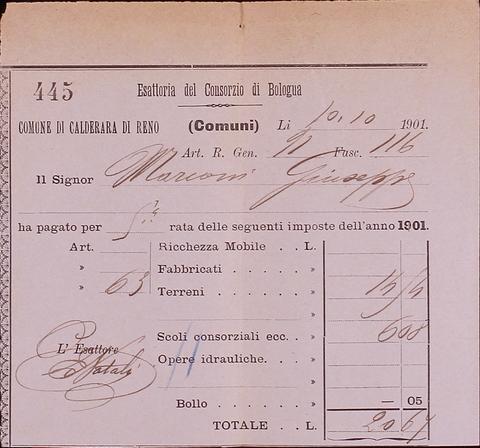 445
Esattoria del Consorzio di Bologna
COMUNE DI CALDERARA DI RENO (Comuni) Li 10.10 1901.
Art. R. Gen. Fasc. 116
Il Signor Marconi Giuseppe
ha pagato per 5ª rata delle seguenti imposte dell'anno 1901.
Art. Ricchezza Mobile . . L.
» Fabbricati . . . . . . »
» 63 Terreni . . . . . . . » 14 54
Scoli consorziali ecc. . » 6 08
L'Esattore
Opere idrauliche. . . . »
»
Bollo . . . . » — 05
TOTALE . . L. 20 67